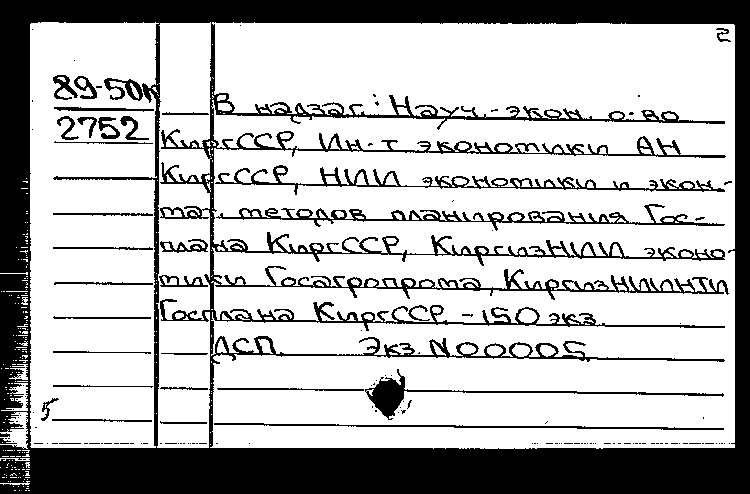 2
89-50к
2752
В надзаг.: Науч.-экон. о-во
КиргССР, Ин-т экономики АН
КиргССР, НИИ экономики и экон.-
мат. методов планирования Гос-
плана КиргССР, КиргизНИИ эконо-
мики Госагропрома, КиргизНИИНТИ
Госплана КиргССР. - 150 экз.
ДСП. Экз. N00005
5